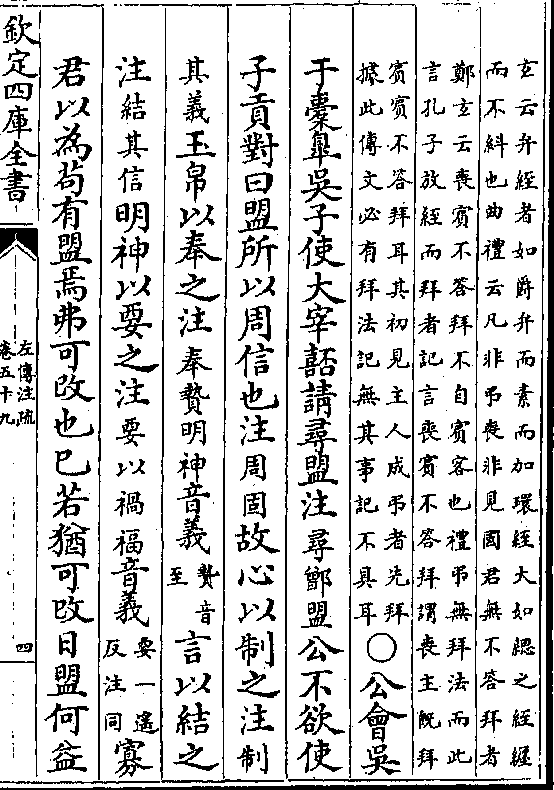 玄云弁絰者如爵弁而素而加環絰大如緦之絰纒
而不糾也曲禮云凡非弔喪非見國君無不答拜者
鄭玄云喪賓不答拜不自賓客也禮弔無拜法而此
言孔子放絰而拜者記言喪賓不答拜謂喪主旣拜
賓賓不答拜耳其初見主人成弔者先拜
據此傳文必有拜法記無其事記不具耳
○公會吳
于橐臯吳子使大宰嚭請尋盟注尋鄫盟公不欲使
子貢對曰盟所以周信也注周固故心以制之注制
其義玉帛以奉之注奉贄明神音義贄音至言以結之
注結其信明神以要之注要以禍福音義要一遙反注同寡
君以為苟有盟焉弗可改也已若猶可改日盟何益
欽定四庫全書
左傳注疏
卷五十九
四